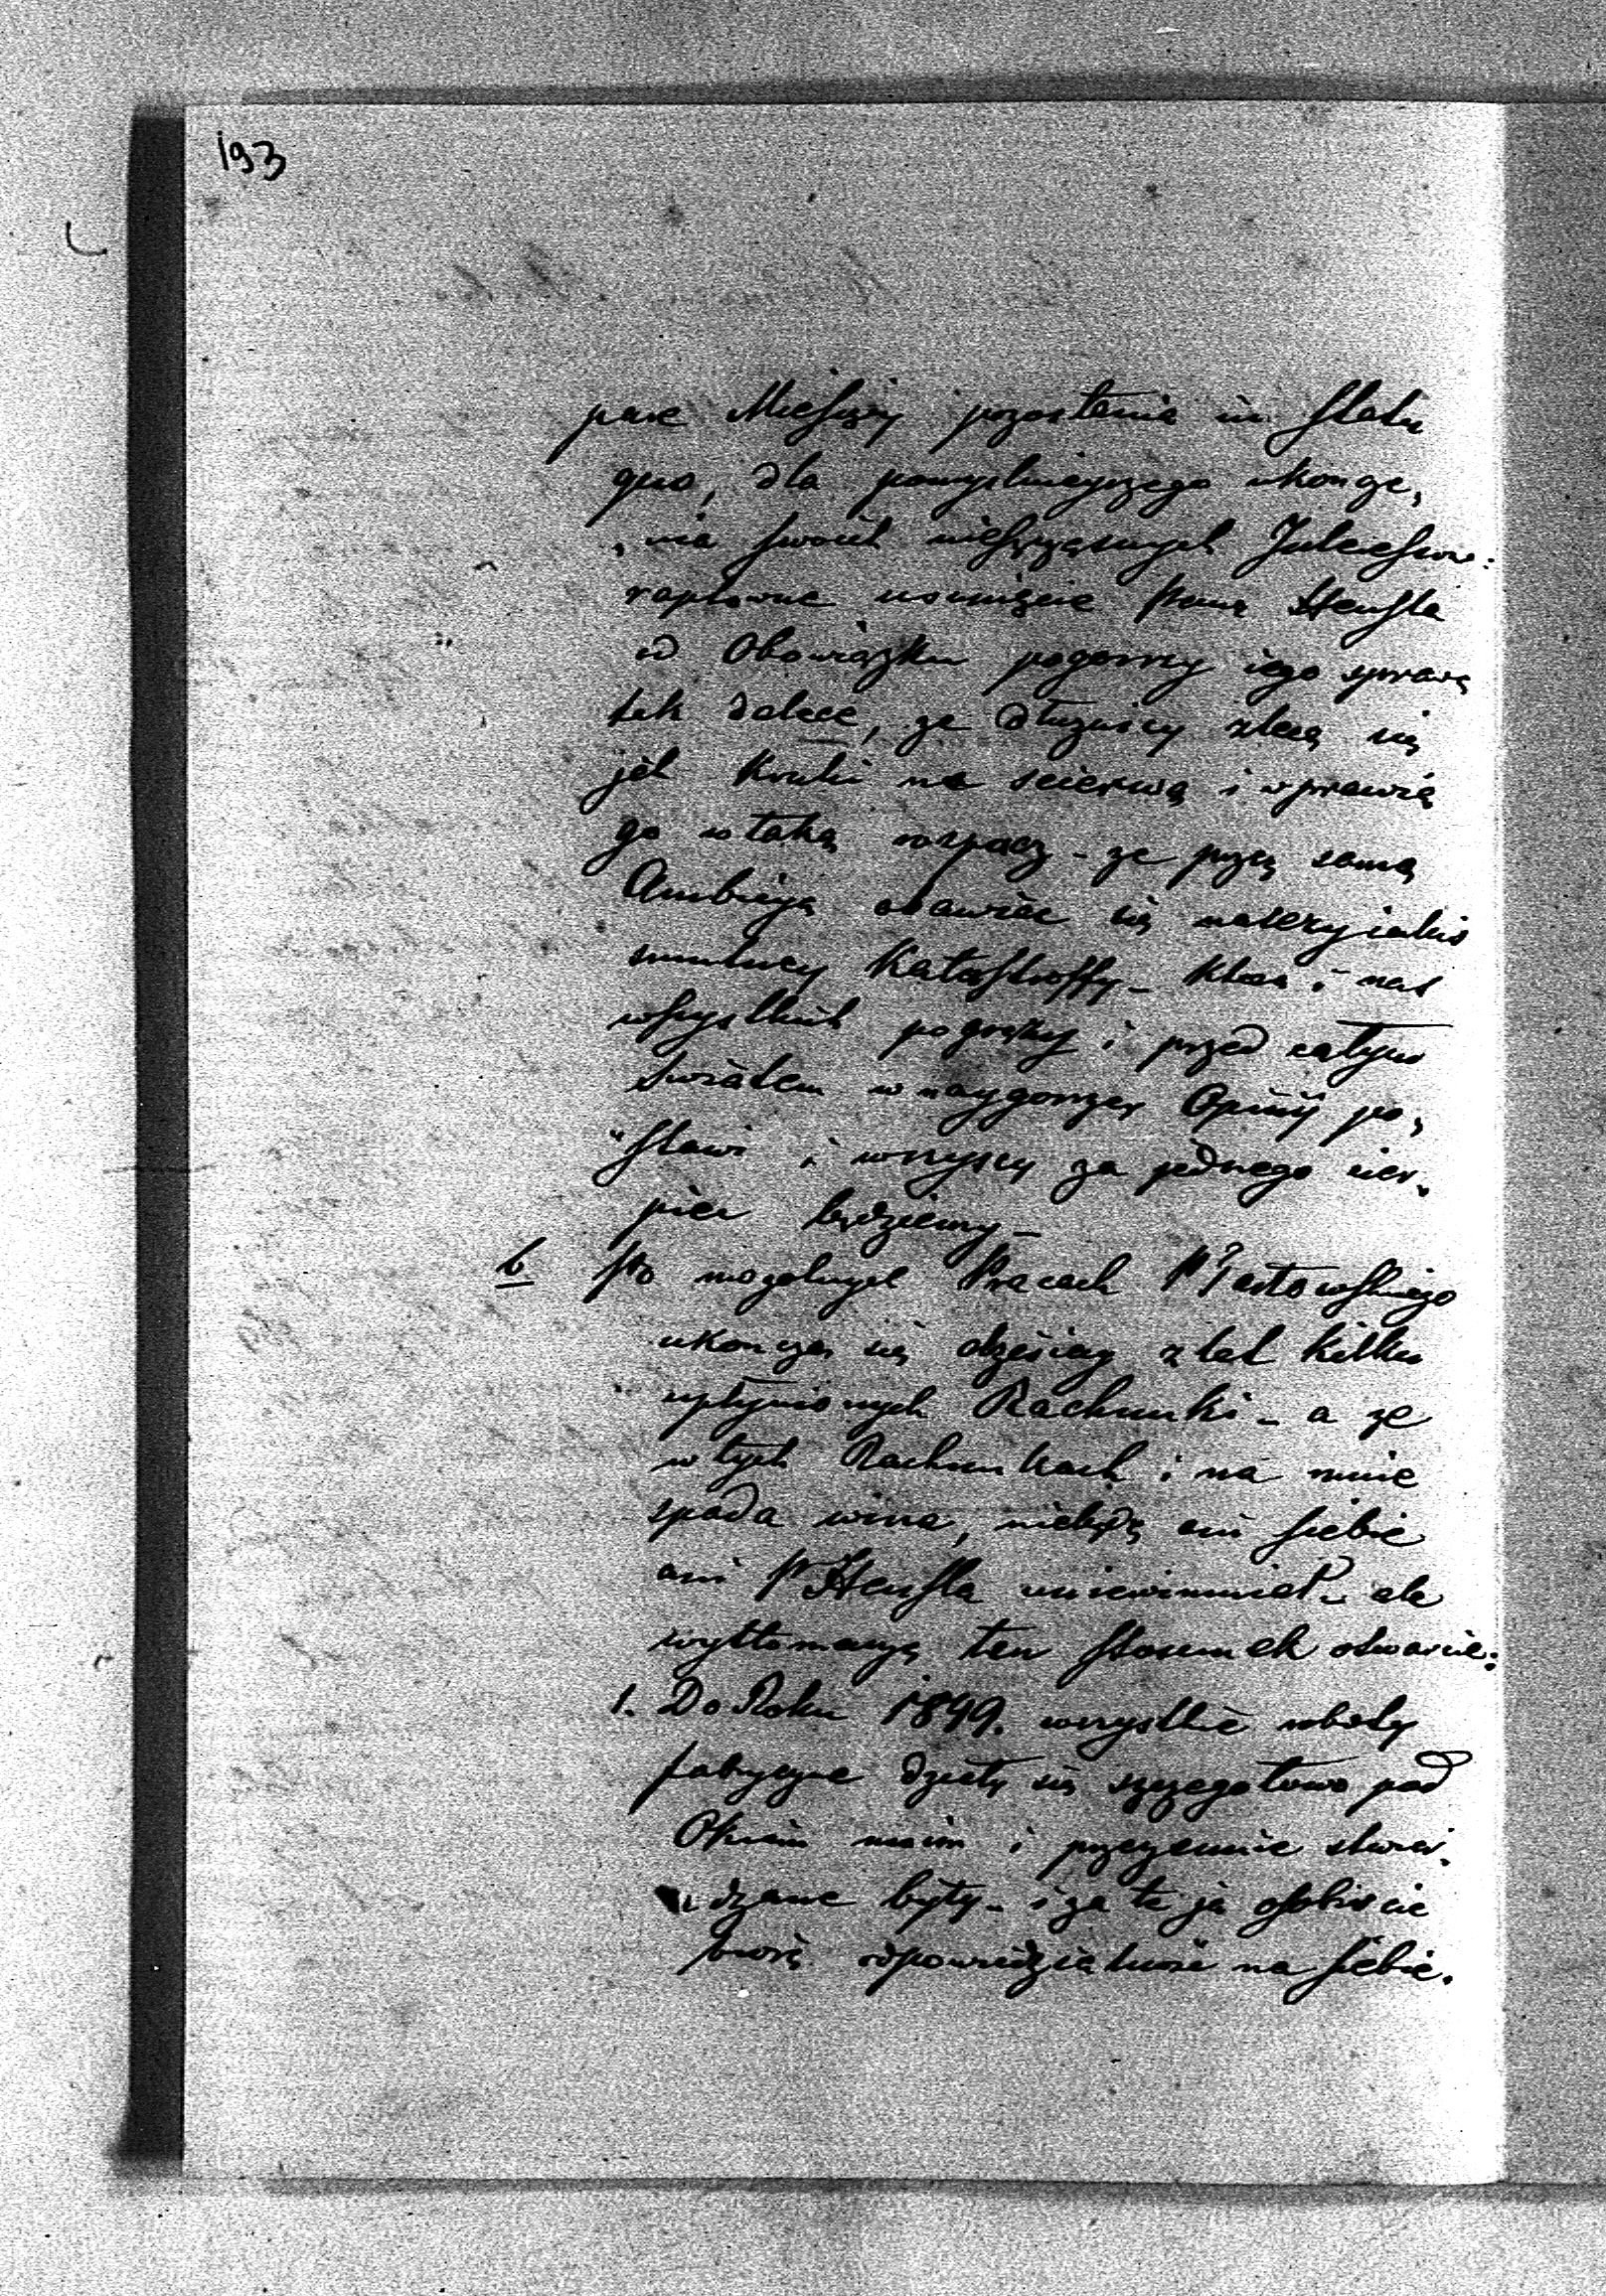 193
parę Miesięcy pozostania in statu
quo, dla pomyslnieyszego ukoncze,
„nia swoich nieszczęsnych Interesow:
raptowne usunięcie Pana Hensla
od Obowiązku pogorszy iego sprawę
tak dalece, że dłużnicy zlecą się
jak Kruki na scierwa i wprawią
go w taką rospacz - że przez samą
Ambicyą obawiac się należy iakies
smutney Katastroffy - ktora i nas
wszystkich pogrąży i przed całym
Swiatem w naygorszey Opinij po,
„stawi i wszyscy za jednego cier.
pieć będziemy -
6 Po mozolnych Pracach P
ukonczą się dzisiay z lat kilku
upłynionych Rachunki - a że
w tych Rachunkach i na mnie
spada wina, niebędę ani siebie
ani P Hensla uniewinniał - ale
wytłomaczę ten stosunek otwarcie:
1. Do Roku 1849. wszystkie roboty
fabryczne działy się szczegołowo pod
Okiem moim i przezemnie stwier.
dzane były - i za te ja osobiscie
biorę odpowiedzialność na siebie.